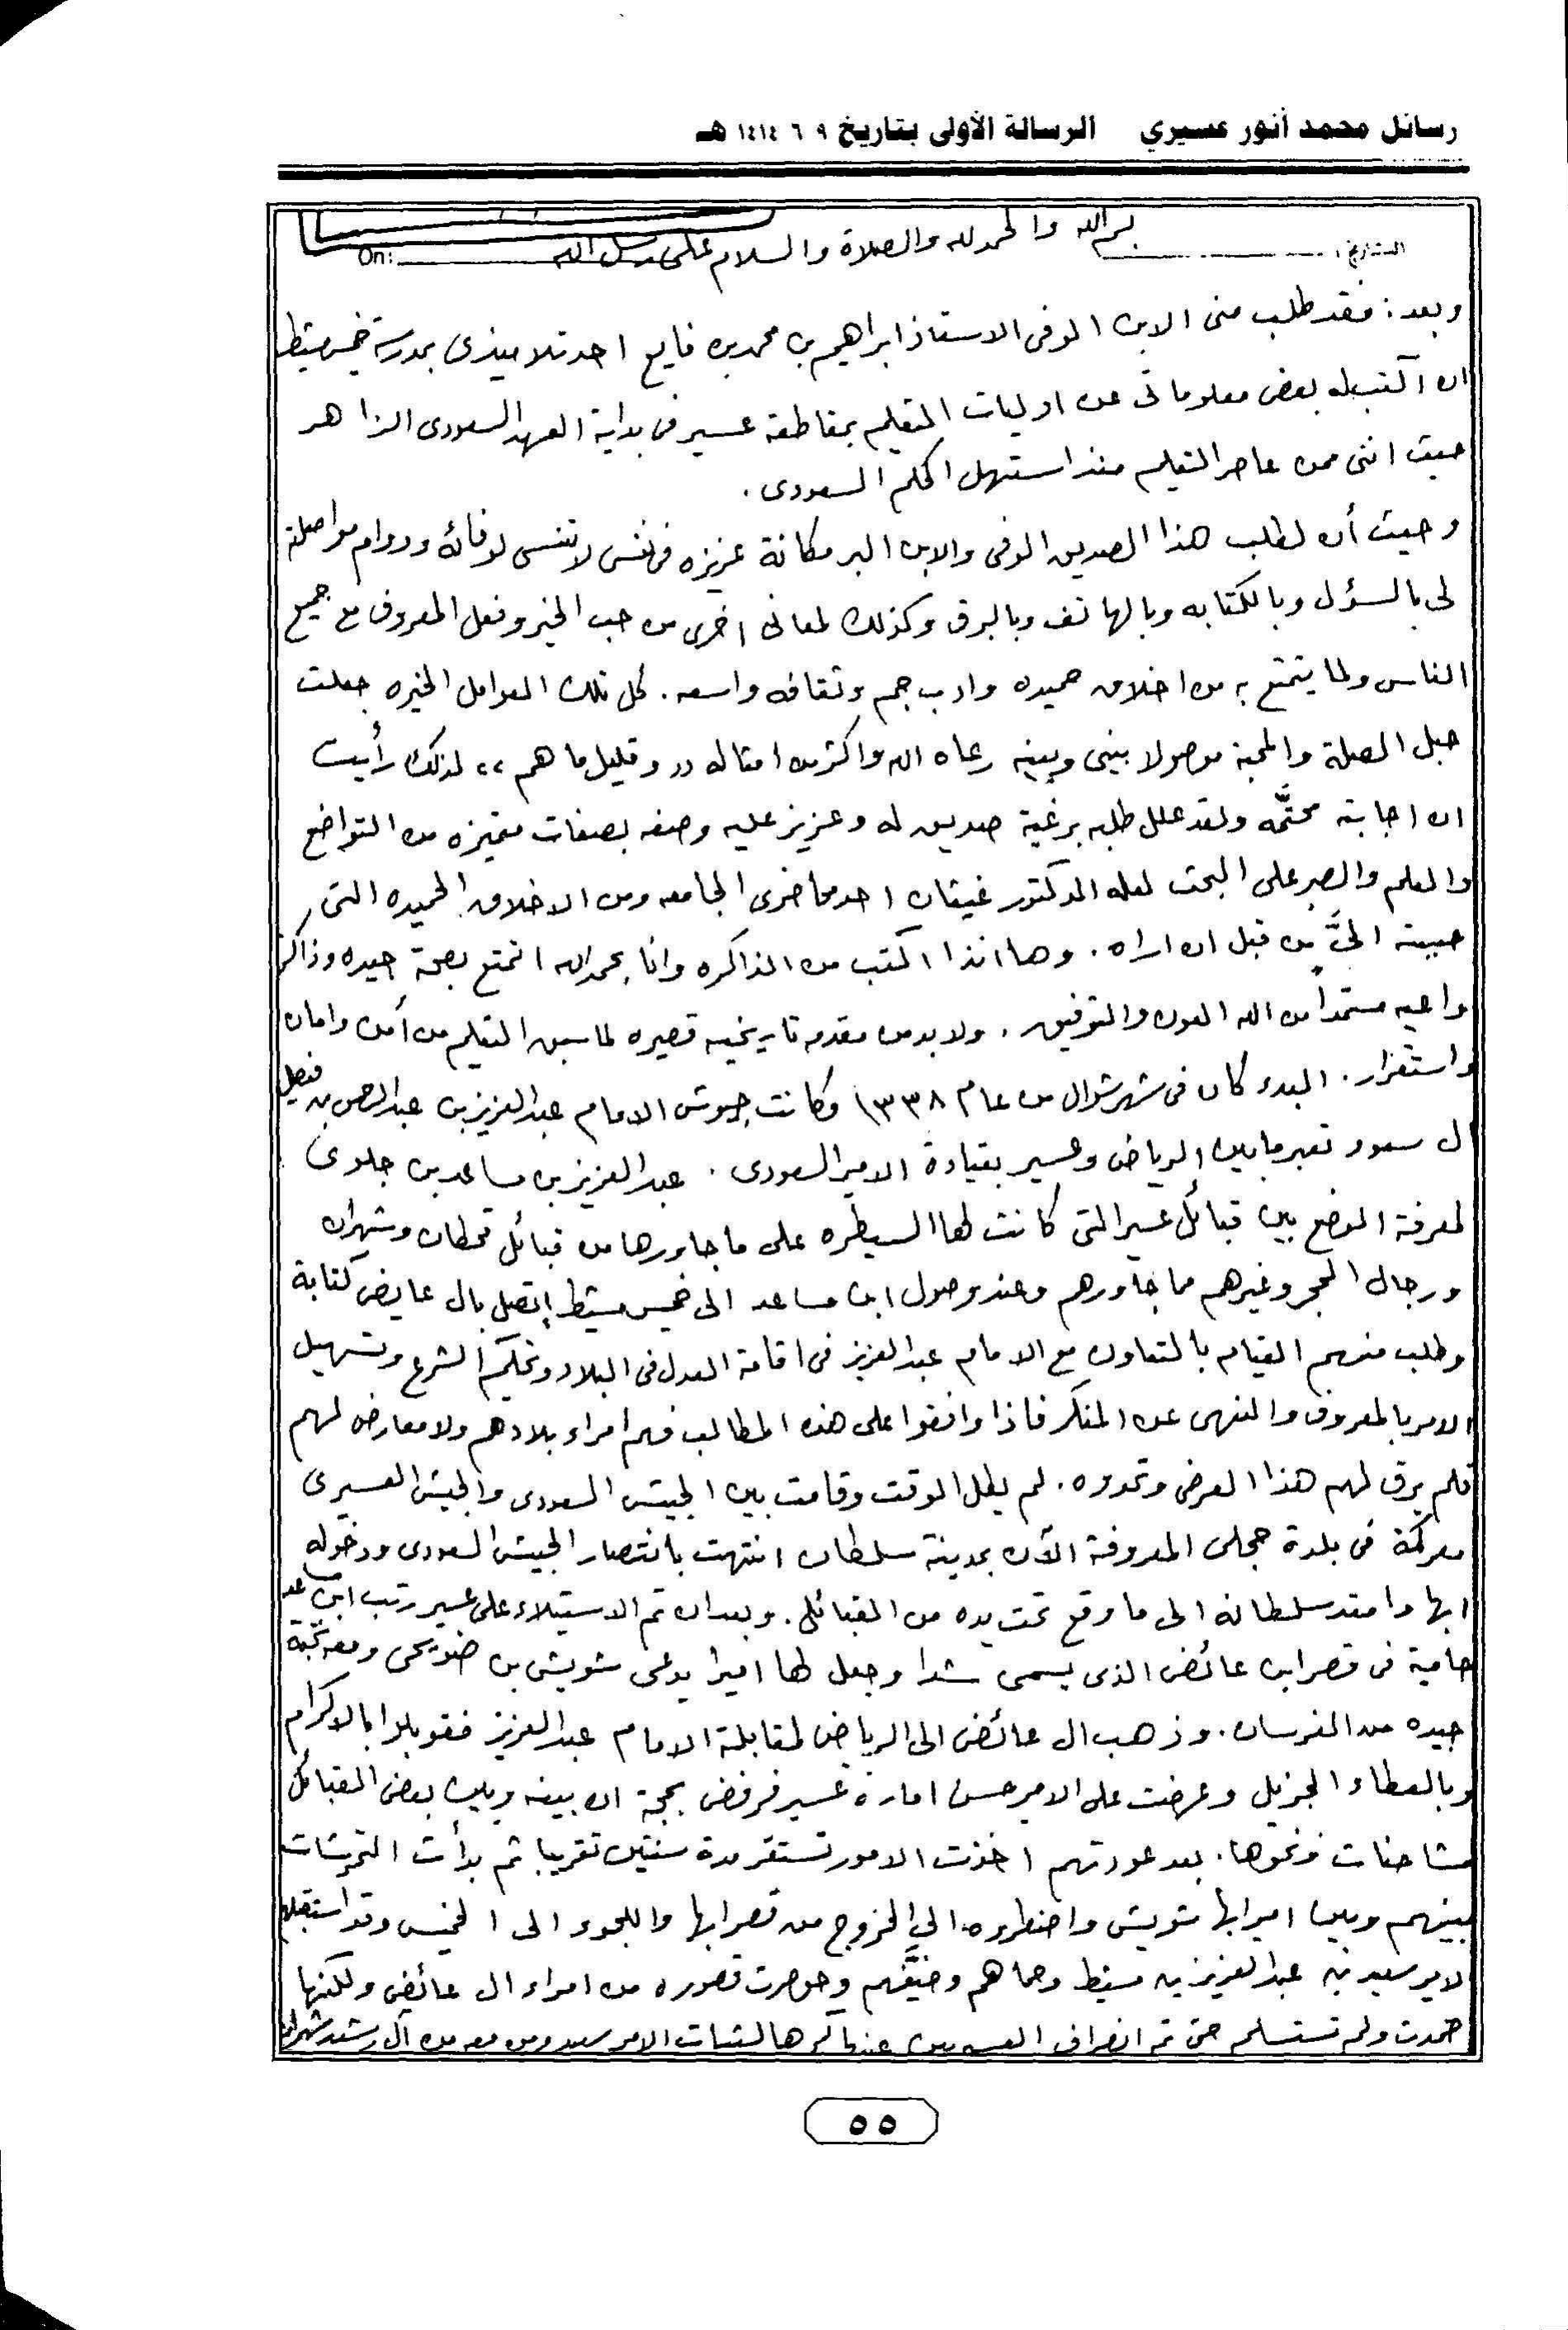 رسائل محمد أنور عسيري الرسالة الأولى بتاريخ ٩ ٦ ١٤١٤ هـ
بسم الله والحمد لله والصلاة والسلام على رسل الله
التاريخ: On:
وبعد: فقد طلب منى الابن الوفى الاستاذ ابراهيم بن محمد بن فايع احد تلاميذى بمدرسة خميس مشيط
ان اكتب له بعض معلوماتى عن اوليات التعليم بمقاطعة عسير فى بداية العهد السعودى الزاهر
حيث اننى ممن عاصر التعليم منذ استهل الحكم السعودى.
وحيث أن لطلب هذا الصديق الوفى والابن البر مكانة عزيزه فى نفسى لا تنسى لوفائه ودوام مواصلته
لى بالسؤل وبالكتابه وبالهاتف وبالبرق وكذلك لمعانى اخرى من حب الخير وفعل المعروف مع جميع
الناس ولما يتمتع به من اخلاق حميده وادب جم وثقافه واسعه. كل تلك العوامل الخيره جعلت
حبل الصلة والمحبة موصولا بينى وبينه رعاه الله واكثر من امثاله ,, وقليل ما هم ،، لذلك رأيت
ان اجابته محتَّمه ولقد علل طلبه برغبة صديق له وعزيز عليه وصفه بصفات متميزه من التواضع
والعلم والصبر على البحث لعله الدكتور غيثان احد محاضرى الجامعه ومن الاخلاق الحميده التى
حببته اليَّ من قبل ان اراه. وها انذا اكتب من الذاكره وانا بحمد الله اتمتع بصحة جيده وذاكرة
واعيه مستمداً من الله العون والتوفيق. ولا بد من مقدمه تاريخيه قصيره لما سبق التعليم من أمن وامان
واستقرار. البدء كان فى شهر شوال من عام ١٣٣٨ وكانت جيوش الامام عبدالعزيز بن عبدالرحمن بن فيصل
ال سعود تعبر ما بين الرياض وعسير بقيادة الامير السعودى. عبدالعزيز بن مساعد بن جلوى
لمعرفة الوضع بين قبائل عسير التى كانت لها السيطره على ما جاورها من قبائل قحطان وشهران
ورجال الحجر وغيرهم مما جاورهم وعند وصول ابن مساعد الى خميس مشيط إتصل بال عايض كتابة
وطلب منهم القيام بالتعاون مع الامام عبدالعزيز فى اقامة العدل فى البلاد وتحكيم الشرع وتسهيل
الامر بالمعروف والنهى عن المنكر فاذا وافقوا على هذه المطالب فهم امراء بلادهم ولا معارض لهم
فلم يرق لهم هذا العرض وتحدوه. لم يطل الوقت وقامت بين الجيش السعودى والجيش العسيرى
معركة فى بلدة حجلى المعروفة الآن بمدينة سلطان انتهت بانتصار الجيش السعودى ودخوله
ابها وامتد سلطانه الى ما وقع تحت يده من القبائل. وبعد ان تم الاستيلاء على عسير رتب ابن مساعد
حامية فى قصر ابن عائض الذى يسمى شدا وجعل لها اميرا يدعى شويش بن ضويحى ومعه نخبة
جيده من الفرسان. وذهب ال عائض الى الرياض لمقابلة الامام عبدالعزيز فقوبلوا بالاكرام
وبالعطاء الجزيل وعرضت على الامير حسن امارة عسير فرفض بحجة ان بينه وبين بعض القبائل
مشاحنات ونحوها. بعد عودتهم اخذت الامور تستقر مدة سنتين تقريبا ثم بدأت التحرشات
بينهم وبين امير ابها شويش واضطروه الى الخروج من قصر ابها واللجوء الى الخميس وقد استقبلهم
الامير سعيد بن عبدالعزيز بن مشيط وحماهم وضيَّفهم وحوصرت قصوره من امراء ال عائض ولكنها
صمدت ولم تستسلم حتى تم انصراف العسيريين عنها كرها لثبات الامير سعيد ومن معه من آل رشيد شهران
٥٥